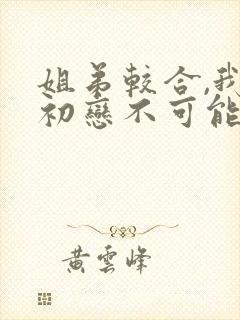 姐弟較合,我
初戀不可能
黃雲峰